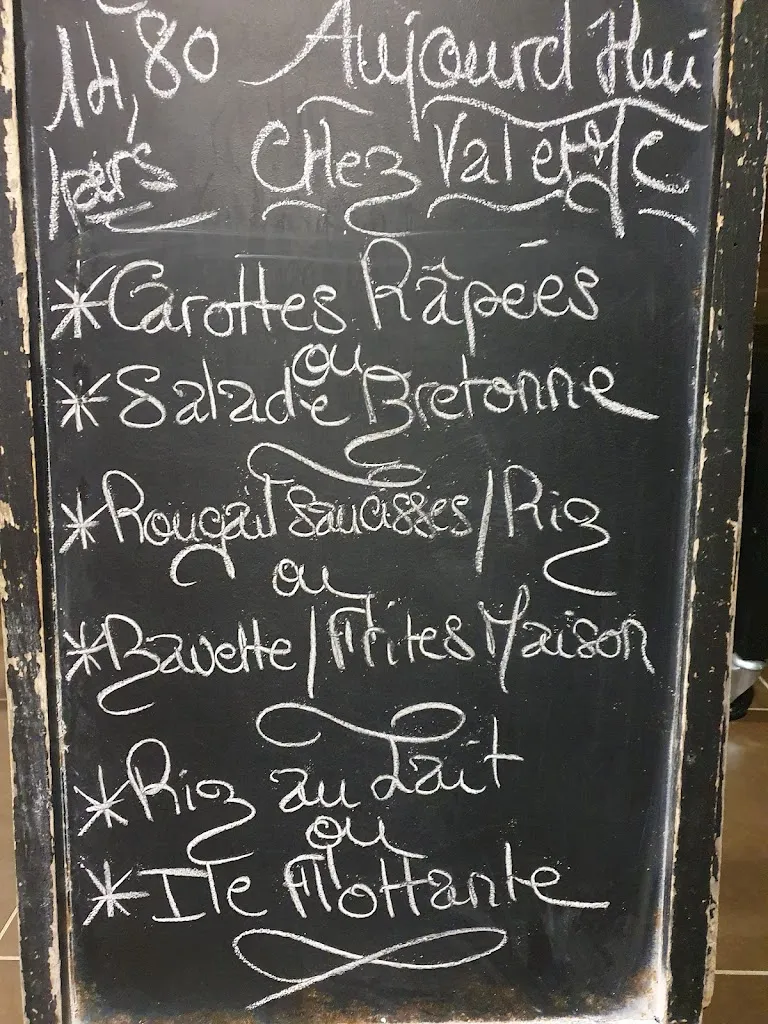 14,80 Aujourd'Hui
1pers Chez Val et MC
*Carottes Râpées
ou
*Salade Bretonne
*Rougail Saucisses/Riz
ou
*Bavette/Frites Maison
*Riz au Lait
ou
*Ile Flottante